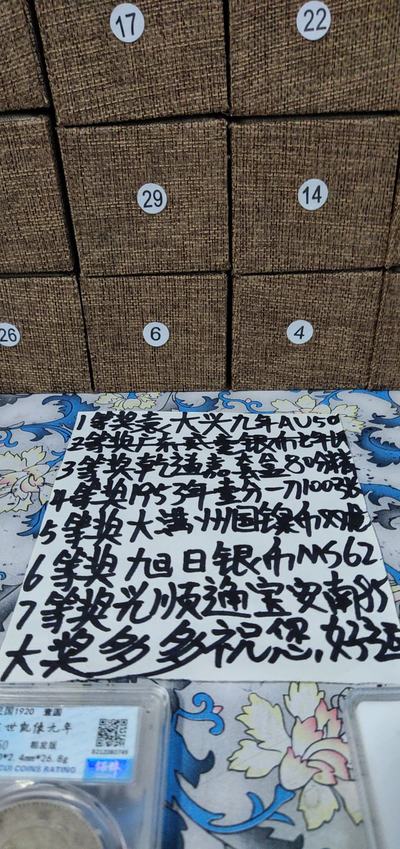 17
22
29
14
26
6
4
1等奖壹大头九年AU50
2等奖 壹银币七年
3等奖乾通 套盒80分
4等奖1953年壹分一刀100张
5等奖大满州国镍币双龙
6等奖旭日银币MS62
7等奖光顺通宝安南85
大奖多多祝您,好运
国1920 壹圆
世凯像九年
50
*2.4mm*26.8g
CUI COINS RATING